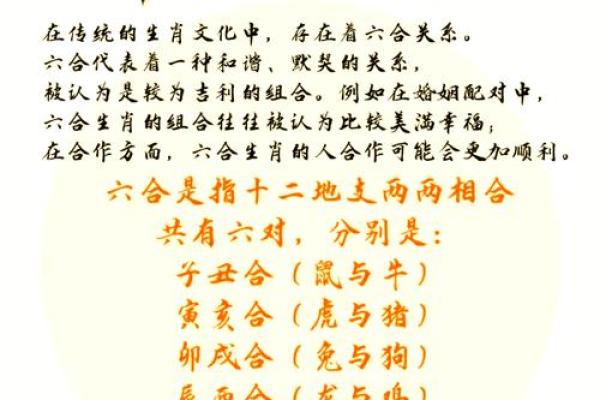 在传统的生肖文化中，存在着六合关系。
六合代表着一种和谐、默契的关系，
被认为是较为吉利的组合。例如在婚姻配对中，
六合生肖的组合往往被认为比较美满幸福；
在合作方面，六合生肖的人合作可能会更加顺利。
六合是指十二地支两两相合
共有六对，分别是：
子丑合（鼠与牛）
寅亥合（虎与猪）
卯戌合（兔与狗）
辰酉合（龙与鸡）